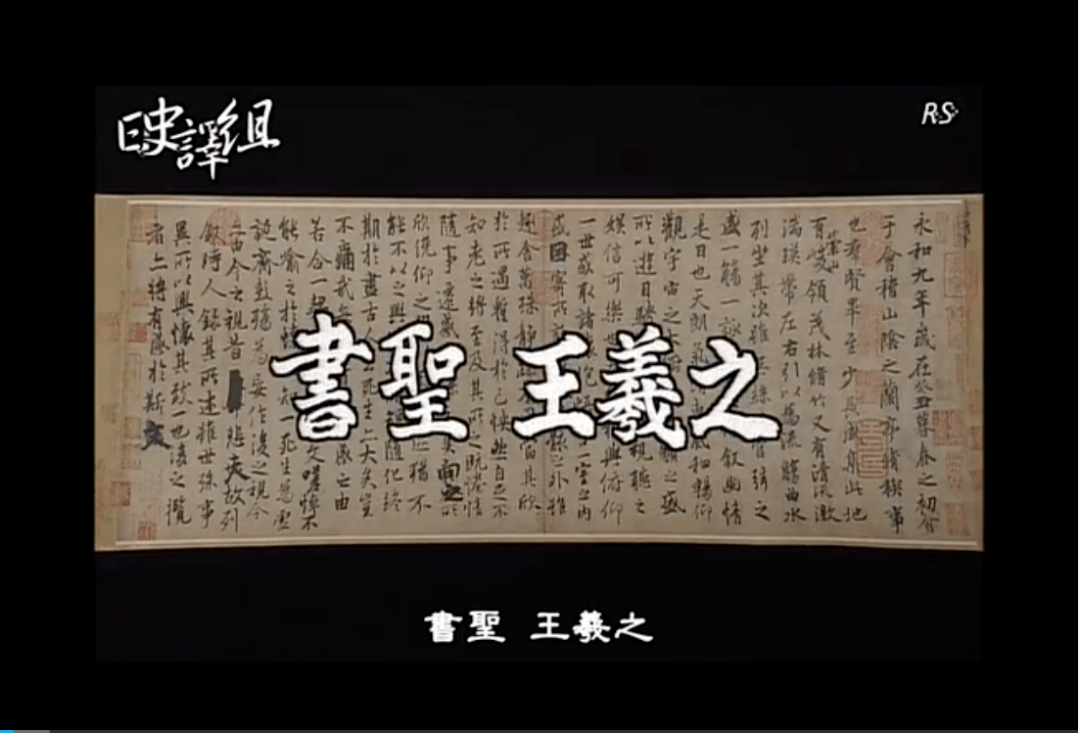 日史譯組
RS
永和九年歲在癸丑暮春之初會
于會稽山陰之蘭亭脩稧事
也羣賢畢至少長咸集此地
有崇山峻領茂林脩竹又有清流激
湍暎帶左右引以為流觴曲水
列坐其次雖無絲管弦之
盛一觴一詠敘幽情
是日也天朗氣和暢仰
觀宇宙之類之盛
所以遊目騁視聽之
娛信可樂與俯仰
一世或取諸一室之內
或因寄所之外雖
趣舍萬殊靜當其欣
於所遇蹔得於己怏然自足不
知老之將至及其所之既惓情
隨事遷感矣向之所
欣俛仰之猶不
能不以之興隨化終
期於盡古人死生亦大矣豈
不痛哉每感之由
若合一契文嗟悼不
能喻之於懷知一死生為虛
誕齊彭殤為妄作後之視今
亦由今之視昔悲夫故列
敘時人錄其所述雖世殊事
異所以興懷其致一也後之攬
者亦將有感於斯文
書聖 王羲之
書聖 王羲之